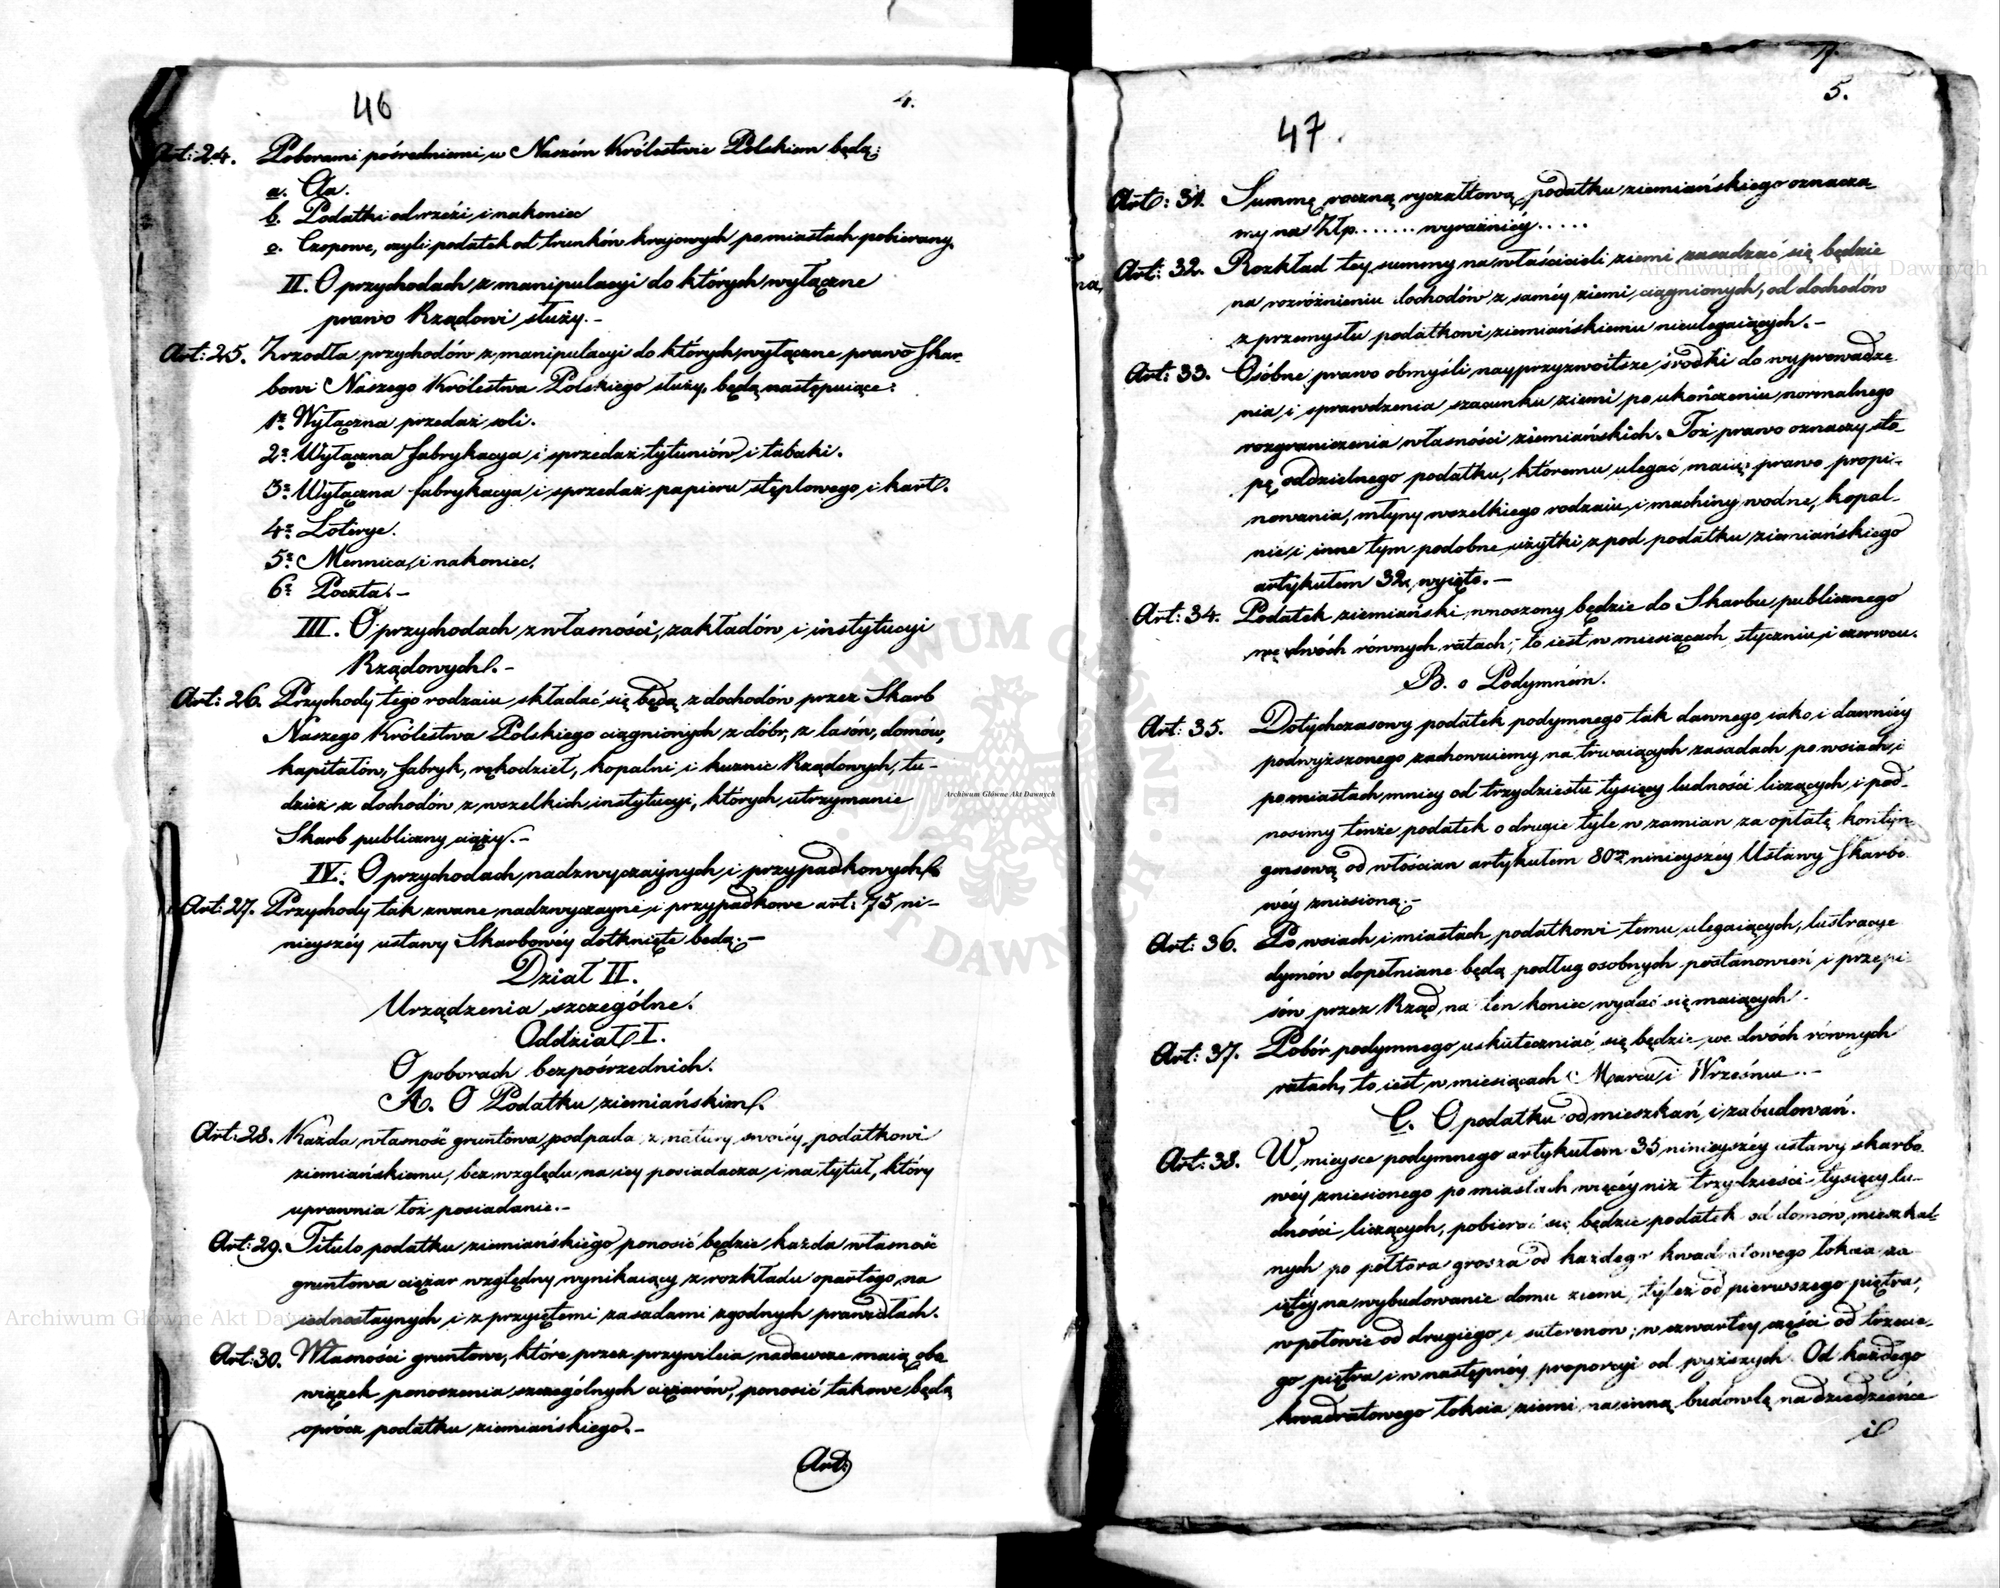 46
4.
Art: 24. Poborami pośredniemi w Naszém Królestwie Polskiem będą:
a. Cła.
b. Podatki od rzezi, i nakoniec
c. Czopowe, czyli podatek od trunków krajowych po miastach pobierany.
II. O przychodach z manipulacyi do których wyłączne
prawo Rządowi służy.–
Art: 25. Zrzodła przychodów z manipulacyi do których wyłączne prawo Skar-
bowi Naszego Królestwa Polskiego służy, będą następuiące:
1e Wyłączna przedaż soli.
2e Wyłączna fabrykacya i sprzedaż tytuniów i tabaki.
3e Wyłączna fabrykacya i sprzedaż papieru stęplowego i kart.
4e Loterye.
5e Mennica, i nakoniec,
6e Poczta.–
III. O przychodach z własności, zakładów i instytucyi
Rządowych.–
Art: 26. Przychody tego rodzaiu składać się będą z dochodów przez Skarb
Naszego Królestwa Polskiego ciągnionych z dóbr, z lasów, domów,
kapitałów, fabryk, rękodzieł, kopalni i kuznic Rządowych, tu-
dzież z dochodów z wszelkich instytucyi, których utrzymanie
Skarb publiczny ciąży.–
IV. O przychodach nadzwyczaynych i przypadkowych
Art: 27. Przychody tak zwane nadzwyczayne i przypadkowe art: 75 ni-
nieyszéy ustawy Skarbowéy dotknięte będą.–
Dział II.
Urządzenia szczególne.
Oddział I.
O poborach bezpośrzednich.
A. O Podatku ziemiańskim.
Art: 28. Każda własność gruntowa podpada z natury swoiéy podatkowi
ziemiańskiemu, bez względu na iey posiadacza i na tytuł, który
uprawnia toż posiadanie.–
Art: 29. Titulo podatku ziemiańskiego ponosić będzie każda własność
gruntowa ciężar względny wynikaiący z rozkładu opartego na
iednostaynych i z przyiętemi zasadami zgodnych prawidłach.
Art: 30. Własności gruntowe, które przez przywileia nadawcze maią obo
wiązek ponoszenia szczególnych ciężarów, ponosić takowe będą
oprócz podatku ziemiańskiego.–
Art:
5.
47.
Art: 31. Summę roczną ryczałtową podatku ziemiańskiego oznacza
my na Złp....... wyrazniéy.....
Art: 32. Rozkład téy summy na właścicieli ziemi zasadzać się będzie
na rozróżnieniu dochodów z saméy ziemi ciągnionych, od dochodów
z przemysłu podatkowi ziemiańskiemu nieulegaiących.–
Art: 33. Osóbne prawo obmyśli nayprzyzwoitsze środki do wyprowadze
nia i sprawdzenia szacunku ziemi po ukończeniu normalnego
rozgraniczenia własności ziemiańskich. Toż prawo oznaczy sto-
pę oddzielnego podatku, któremu ulegać maią: prawo propi-
nowania, młyny wszelkiego rodzaiu, i machiny wodne, kopal-
nie, i inne tym podobne użytki z pod podatku ziemiańskiego
artykułem 32. wyięte.–
Art: 34. Podatek ziemiański wnoszony będzie do Skarbu publicznego
we dwóch równych ratach, to iest w miesiącach styczniu i czerwcu.
B. o Podymném.
Art: 35. Dotychczasowy podatek podymnego tak dawnego, iako i dawniéy
podwyższonego zachowuiemy na trwaiących zasadach po wsiach, i
po miastach mniéy od trzydziestu tysięcy ludności liczących, i pod-
nosimy tenże podatek o drugie tyle w zamian za opłatę kontyn-
gensową od włościan artykułem 80m ninieyszéy Ustawy Skarbo
wéy zniesioną.–
Art: 36. Po wsiach i miastach podatkowi temu ulegaiących, lustracye
dymów dopełniane będą podług osobnych postanowień i przepi-
sów przez Rząd na ten koniec wydać się maiących.
Art: 37. Pobór podymnego uskuteczniać się będzie we dwóch równych
ratach, to iest w miesiącach Marcu i Wrześniu.–
C. O podatku od mieszkań i zabudowań.
Art: 38. W mieysce podymnego artykułem 35 ninieyszéy ustawy skarbo
wéy zniesionego po miastach więcéy niż trzydzieści tysięcy lu-
dności liczących, pobierać się będzie podatek od domów mieszkal-
nych po półtora grosza od każdego kwadratowego łokcia za-
iętéy na wybudowanie domu ziemi, tyleż od pierwszego piętra,
w połowie od drugiego i suterenów; w czwartéy części od trzecie-
go piętra i w następnéy proporcyi od wyższych. Od każdego
kwadratowego łokcia ziemi na inną budowlę na dziedzińce
i
Archiwum Główne Akt Dawnych
Archiwum Główne Akt Dawnych
Archiwum Główne Akt Dawnych